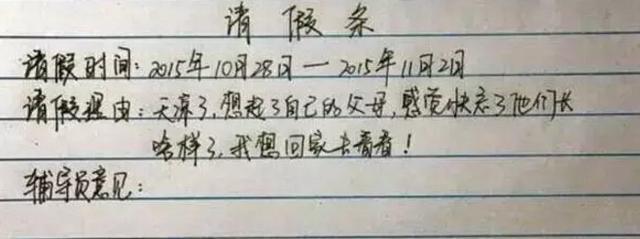 请假条
请假时间:2015年10月28日—2015年11月2日
请假理由:天凉了,想起了自己的父母,感觉快忘了他们长
啥样了,我想回家去看看!
辅导员意见: